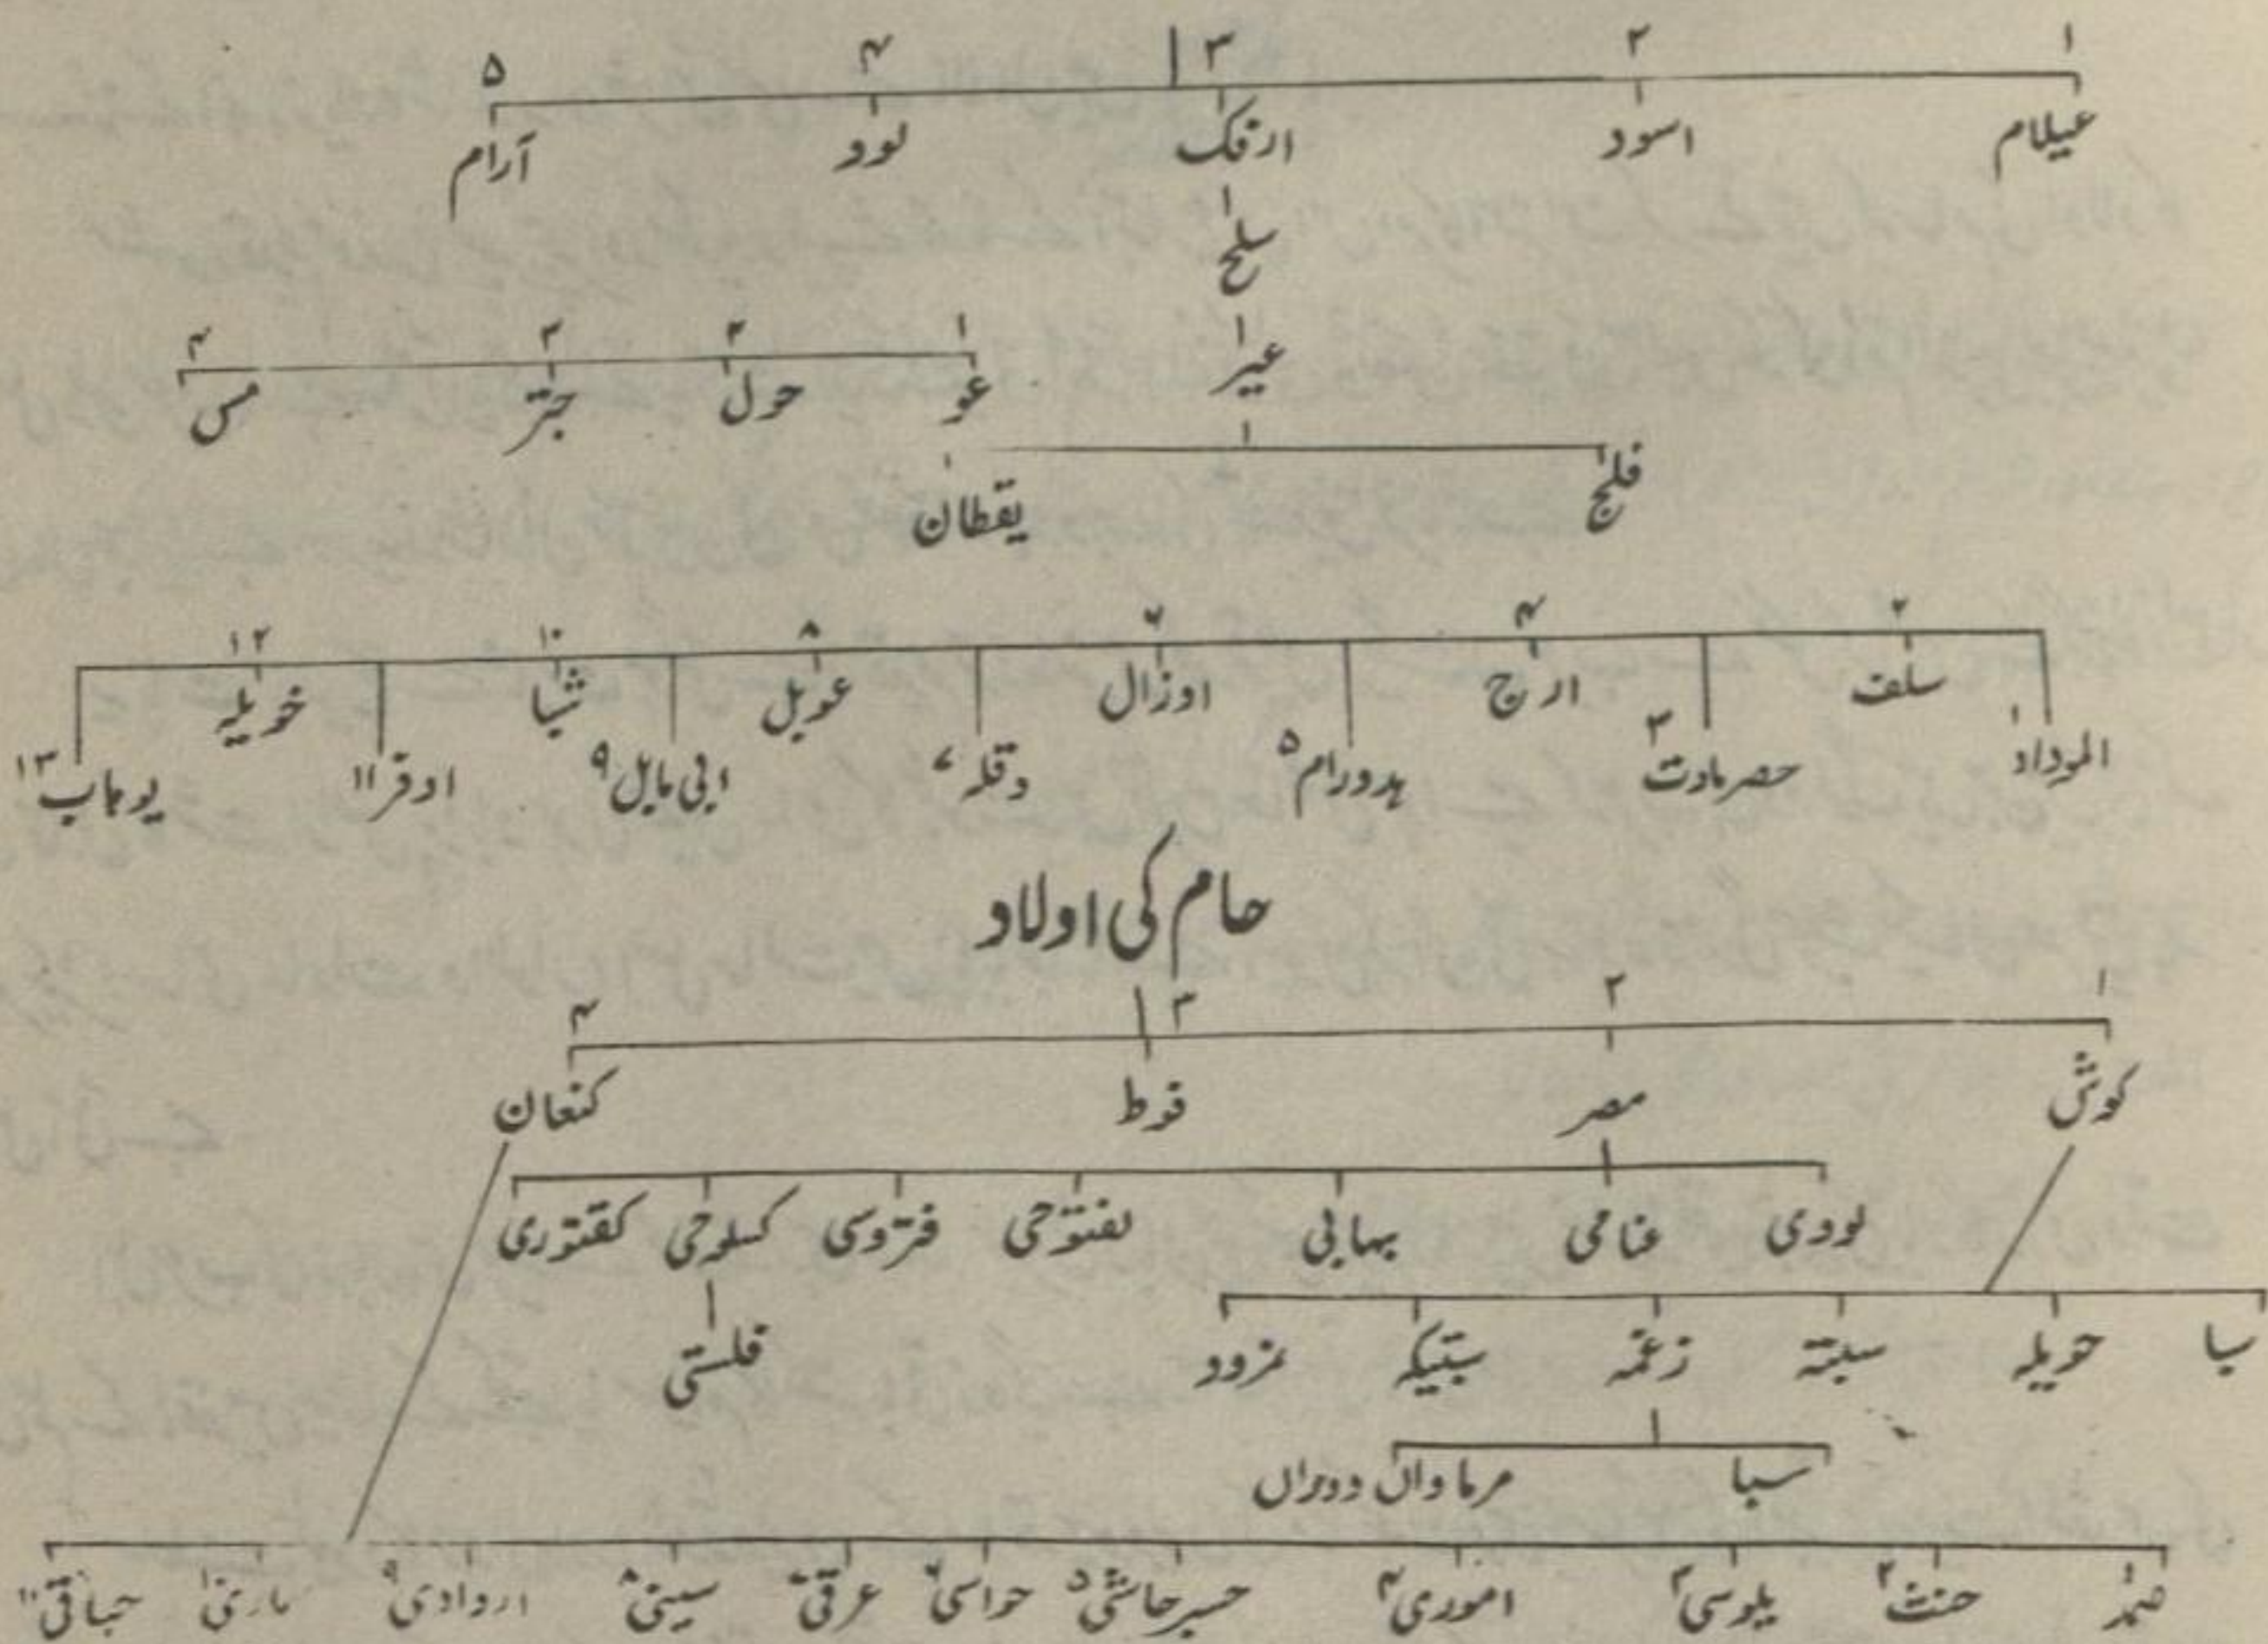 ۱ ۲ ۳ ۴ ۵
عیلام اسود ارفک لود آرام
سلح
عیر
۱ ۲ ۳ ۴
عو حول جتر مس
فلج یقطان
۲ ۴ ۶ ۸ ۱۰ ۱۲
سلف ارج اوزال عوبل شبا خویلہ
المودادا ۱ حصرمادت ۳ ہدورام ۵ دقلہ ۷ ابی مایل ۹ اوفر ۱۱ یوباب ۱۳
حام کی اولاد
۱ ۲ ۳ ۴
کوش مصر فوط کنعان
لودی عنامی بہابی لفتوحی فتروسی کسلوحی کفتوری
سبا حویلہ سبتہ زغمہ سبتیکہ نمرود
فلستی
سبا مرماوان ددوان
حنث ۲ یلوسی ۳ اموری ۴ جسیرجاشی ۵ حواسی ۶ عرقی ۷ سینی ۸ اروادی ۹